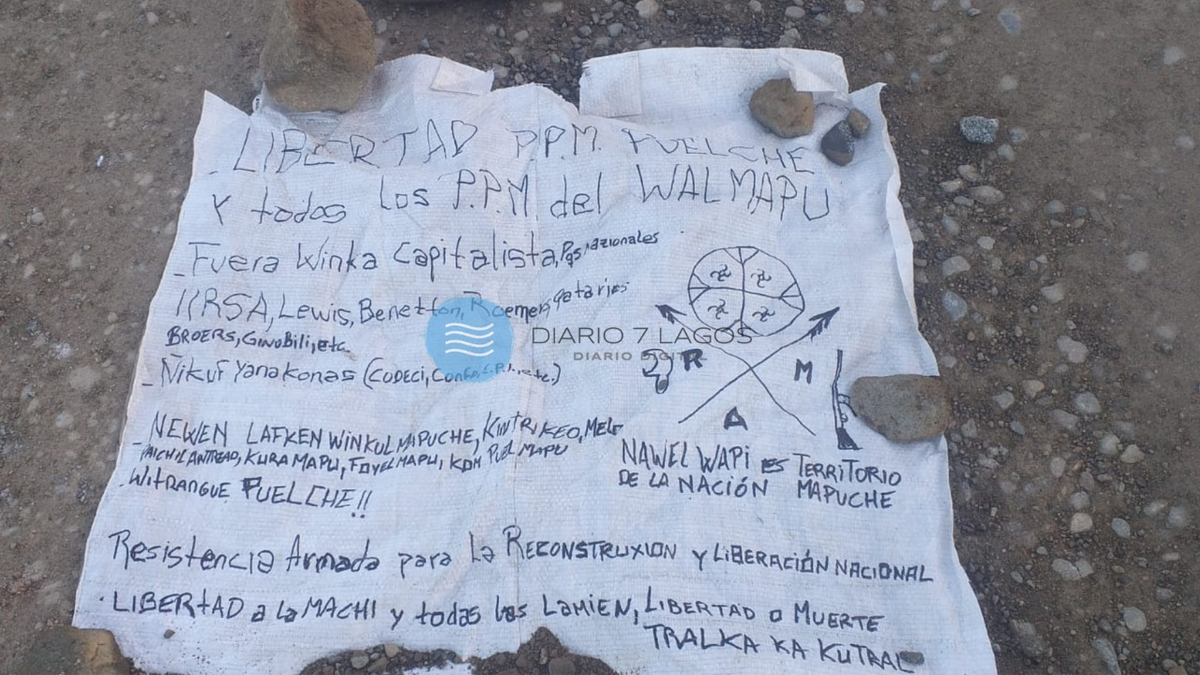 LIBERTAD P.P.M. PUELCHE
Y todos los P.P.M del WALMAPU
- Fuera Winka Capitalista,
IIRSA, Lewis, Benetton, Roemers, qataries
BROERS, Ginobili, etc.
- Ñikuf Yanakonas (CODECI,
- NEWEN LAFKEN WINKUL MAPUCHE, KINTRIKEO, Mele
PAICHIL ANTREAO, KURA MAPU, FOYEL MAPU, KDM PUEL MAPU
WITRANGUE PUELCHE!!
R M
A
NAWEL WAPI es TERRITORIO
DE LA NACIÓN MAPUCHE
Resistencia Armada para la RECONSTRUXION y LIBERACIÓN NACIONAL
LIBERTAD a la MACHI y todas las LAMIEN, LIBERTAD O MUERTE
TRALKA KA KUTRAL
DIARIO 7 LAGOS
DIARIO DIGITAL